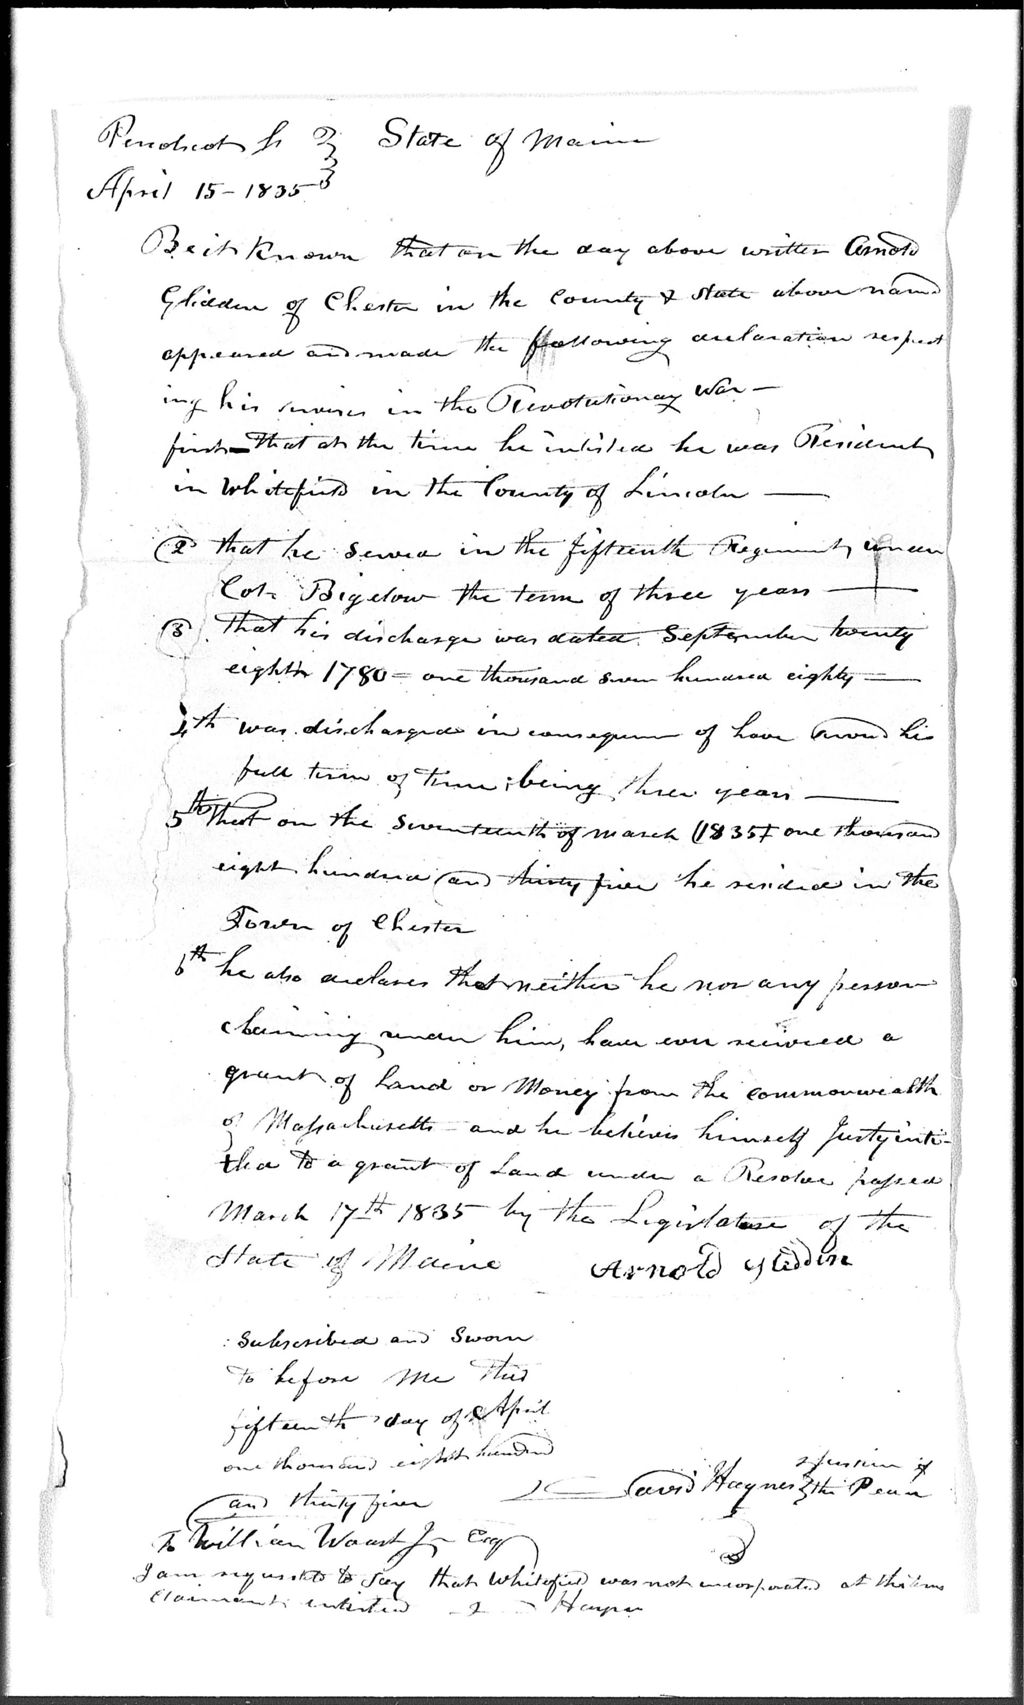 Penobscot Ss State of Maine
April 15 - 1835
Be it Known that on the day above written Arnold
Glidden of Chester in the County & State above named
appeared and made the following declaration respect
ing his services in the Revolutionary War -
first - That at the time he inlisted he was Resident
in Whitefield in the County of Lincoln
(2) that he served in the fifteenth Regiment under
Col. Bigelow the term of three years
(3) That his discharge was dated September twenty
eighth 1780 = one thousand seven hundred eighty
4th was discharged in consequence of have served his
full term of time; being three years
5th That on the seventeenth of March (1835) one thousand
eight hundred and thirty five he resided in the
Town of Chester
6th he also declares that neither he nor any person
claiming under him, have ever received a
grant of Land or Money from the commonwealth
of Massachusetts - and he believes himself Justly inti-
tled to a grant of Land under a Resolve passed
March 17th 1835 by the Legislature of the
State of Maine Arnold Glidden
Subscribed and Sworn
To before Me This
fifteenth day of April
one thousand eight hundred
and thirty five David Haynes Justice of the Peace
To William Esq
I am requested to say that Whitefield was not incorporated at the time
Claimant intisted Haynes